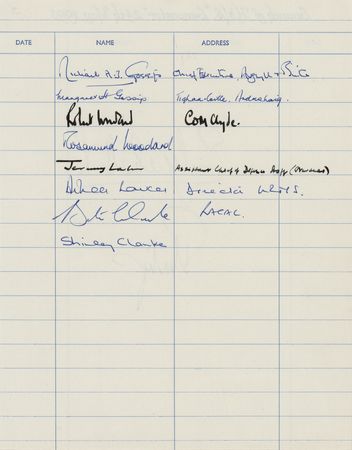 DATE NAME ADDRESS
Michael A.J. Gossip Chief Executive, Argyll & Bute
Margaret Gossip Tighnacastle, Ardrishaig.
Robert Woodard Com Clyde.
Rosamund Woodard
Jeremy Assistant Chief of Defence Staff
Director
RACAL.
Shirley Clarke